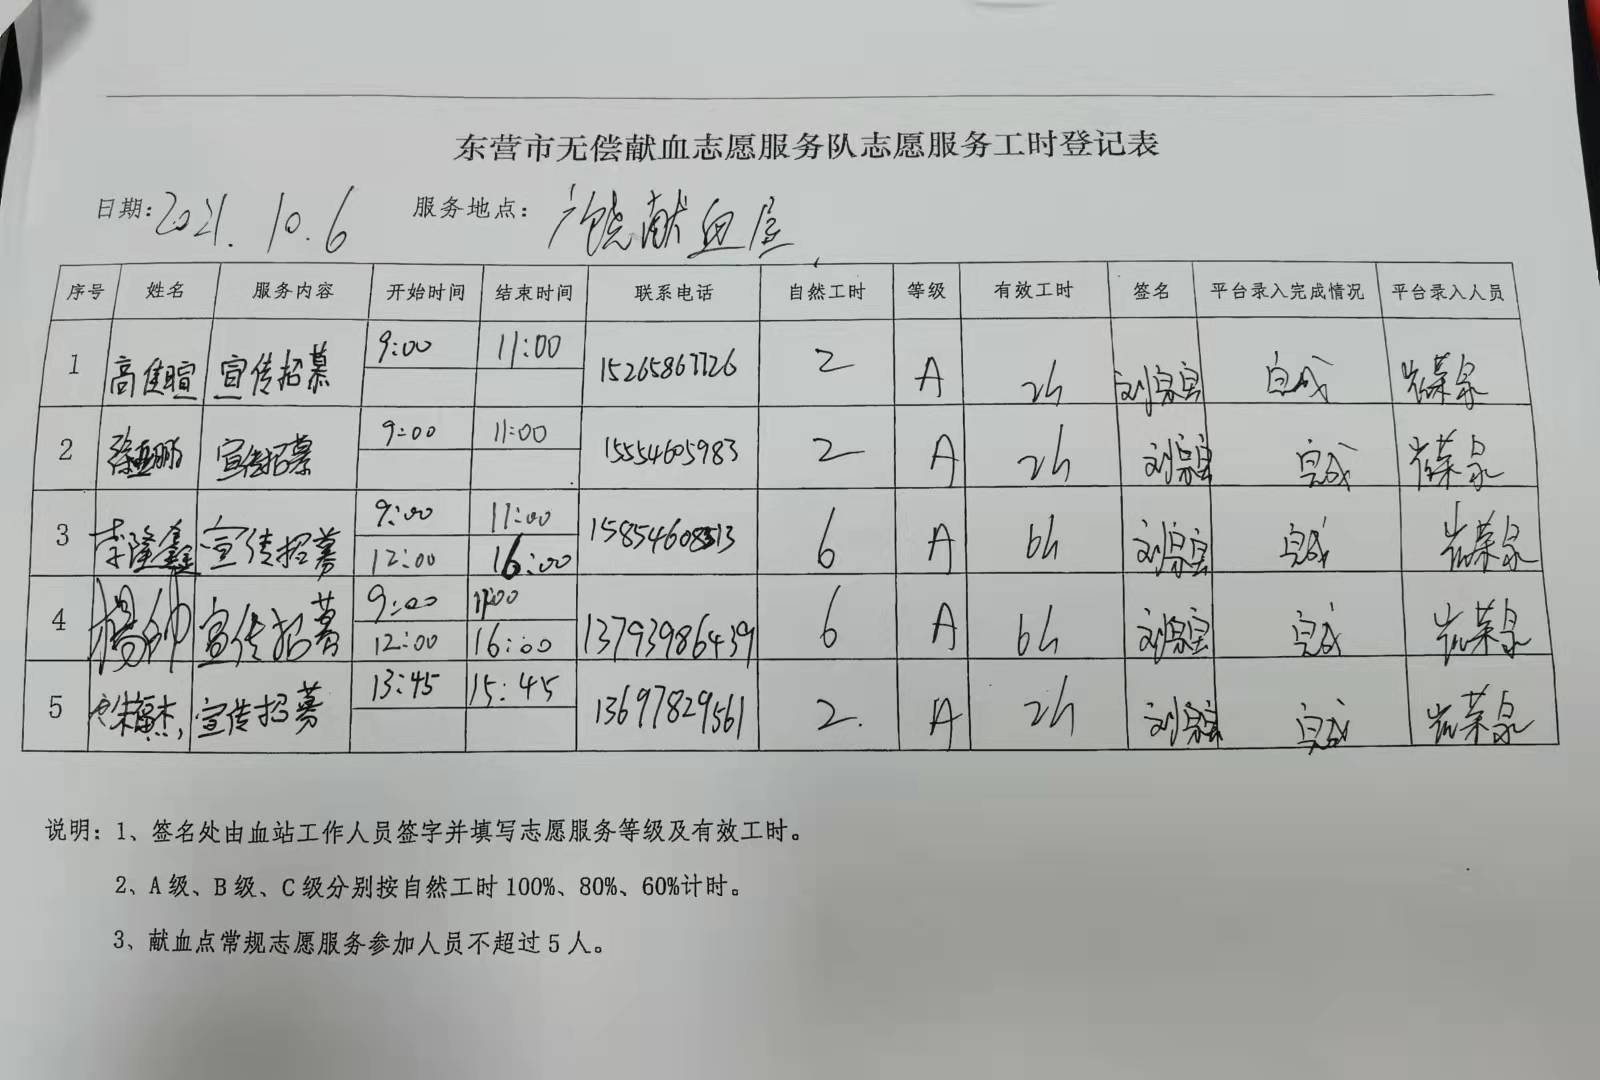 东营市无偿献血志愿服务队志愿服务工时登记表
日期：2021.10.6 服务地点：广饶献血屋
序号 姓名 服务内容 开始时间 结束时间 联系电话 自然工时 等级 有效工时 签名 平台录入完成情况 平台录入人员
1 高佳暄 宣传招募 9:00 11:00 15265867726 2 A 2h 完成
2 徐亚鹏 宣传招募 9:00 11:00 15554605983 2 A 2h 完成
3 李隆鑫 宣传招募 9:00 11:00 6 A 6h 完成
12:00 16:00
4 杨帅 宣传招募 9:00 11:00 13793986439 6 A 6h 完成
12:00 16:00
5 宣传招募 13:45 15:45 13697829561 2 A 2h 完成
说明：1、签名处由血站工作人员签字并填写志愿服务等级及有效工时。
2、A级、B级、C级分别按自然工时100%、80%、60%计时。
3、献血点常规志愿服务参加人员不超过5人。